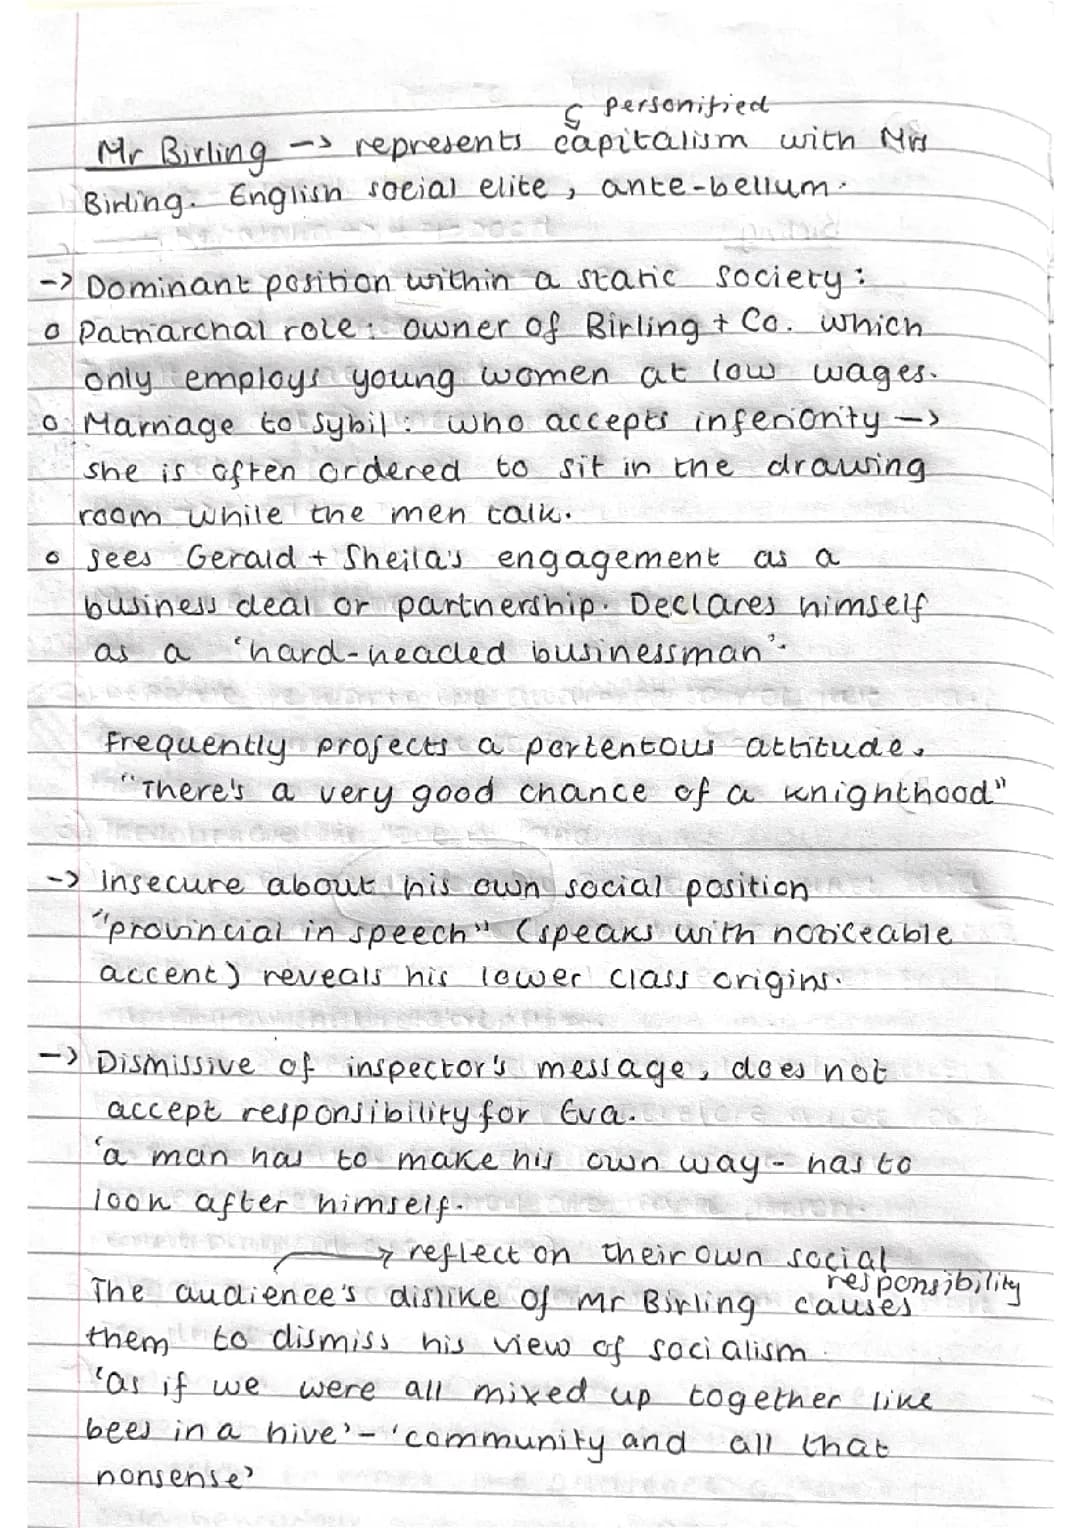 ↳ personified
Mr Birling –> represents capitalism with Mrs
Birling. English social elite, ante-bellum.
–> Dominant position within a static society:
o Patriarchal role: owner of Birling + Co. which
only employs young women at low wages.
o Marriage to Sybil: who accepts inferiority –>
she is often ordered to sit in the drawing
room while the men talk.
o Sees Gerald + Sheila's engagement as a
business deal or partnership. Declares himself
as a 'hard-headed businessman'.
Frequently projects a portentous attitude.
"There's a very good chance of a knighthood"
–> Insecure about his own social position
"provincial in speech" (speaks with noticeable
accent) reveals his lower class origins.
–> Dismissive of inspector's message, does not
accept responsibility for Eva.
'a man has to make his own way - has to
look after himself.
→ reflect on their own social
responsibility
The audience's dislike of Mr Birling causes
them to dismiss his view of socialism.
'as if we were all mixed up together like
bees in a hive' - 'community and all that
nonsense'